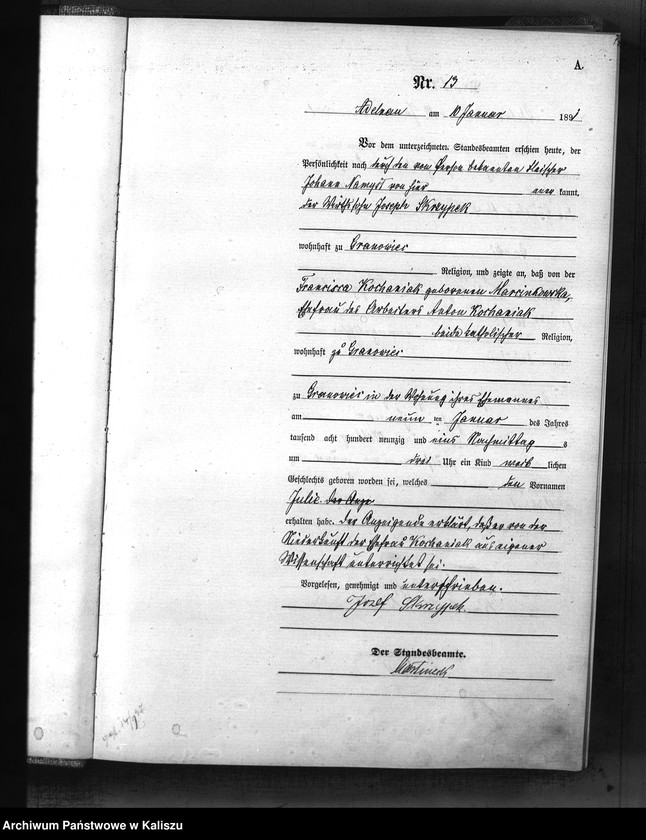 A.
Nr. 13
Adelnau am 10 Januar 1891
Vor dem unterzeichneten Standesbeamten erschien heute, der
Persönlichkeit nach durch den von Person bekannten Fleischer
Johann Namysl von hier aner kannt,
der Wirthssohn Joseph Skrzypek
wohnhaft zu Granowiec
Religion, und zeigte an, daß von der
Francisca Kochaniak geborenen Marcinkowska,
Ehefrau des Arbeiters Anton Kochaniak
beide katholischer Religion,
wohnhaft zu Granowiec
zu Granowiec in der Wohnung ihres Ehemannes
am neun ten Januar des Jahres
tausend acht hundert neunzig und eins Nachmittag s
um drei Uhr ein Kind weib lichen
Geschlechts geboren worden sei, welches den Vornamen
Julie. der Anze
erhalten habe. Der Anzeigende erklärt, daß er von der
Niederkunft der Ehefrau Kochaniak aus eigener
Wissenschaft unterrichtet sei.
Vorgelesen, genehmigt und unterschrieben.
Jozef Skrzypek.
Der Standesbeamte.
Archiwum Państwowe w Kaliszu